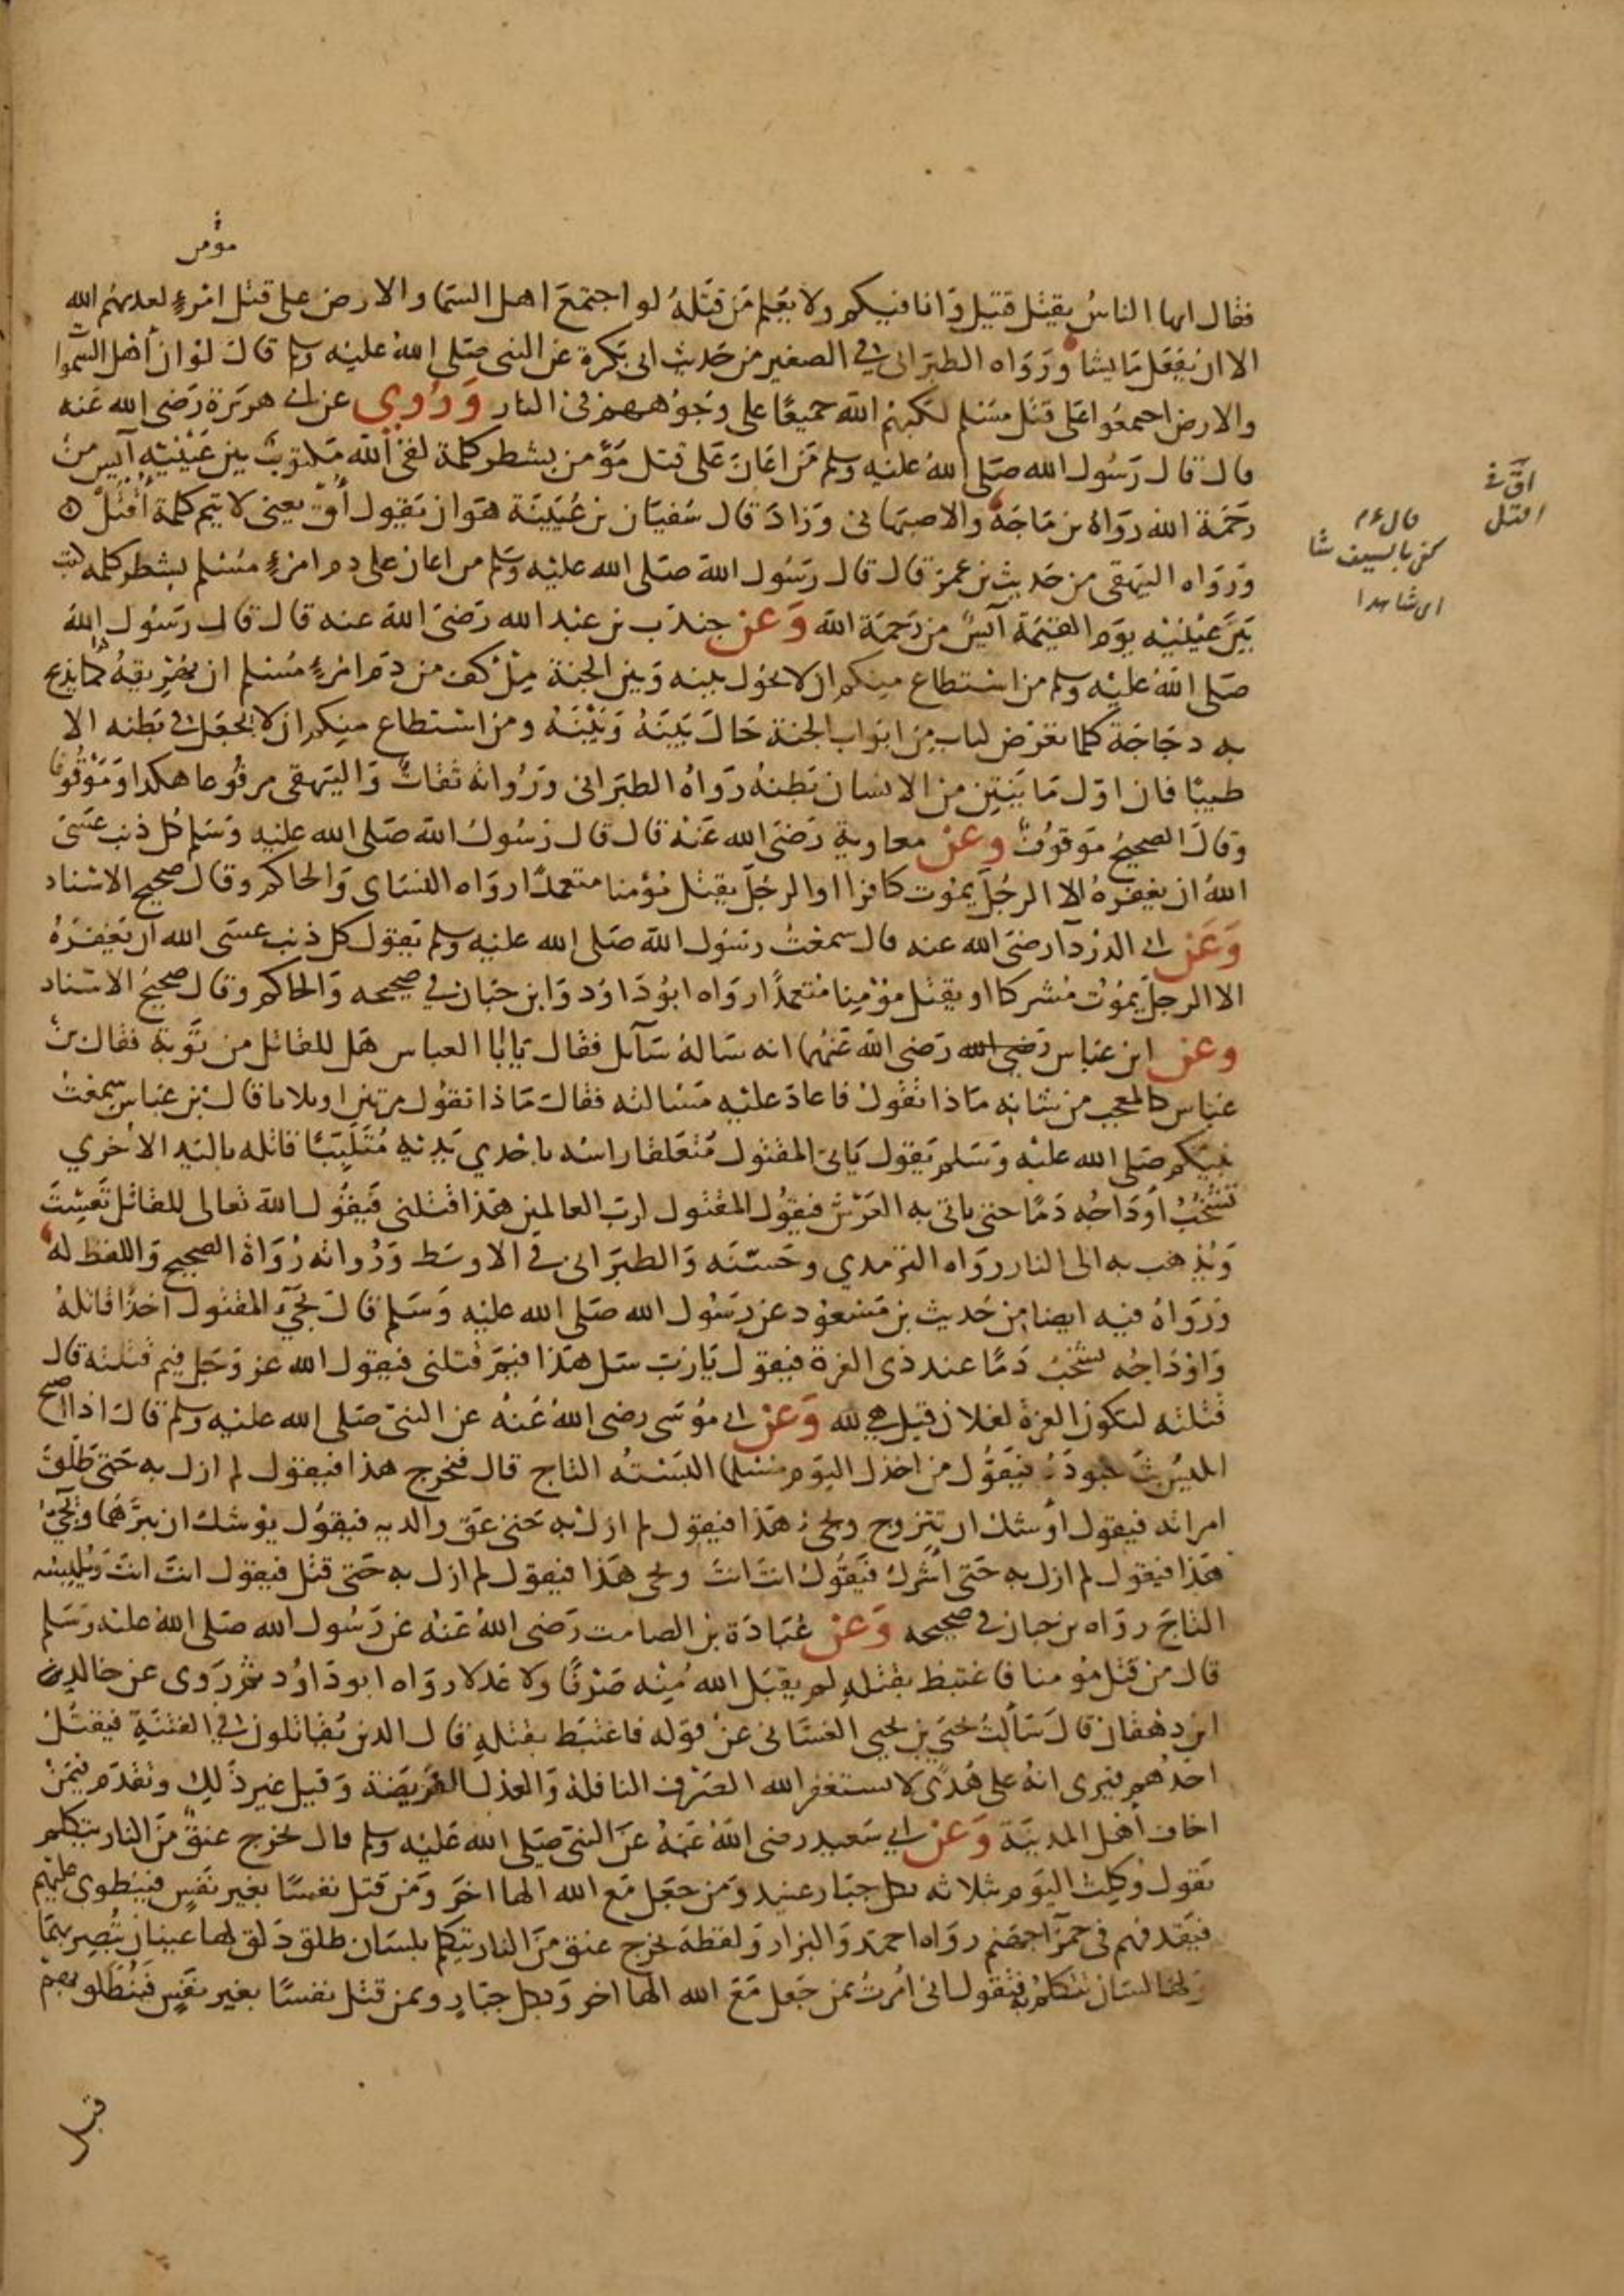 مؤمن
فقال ايها الناسُ يقتل قتيل وَانا فيكم ولا يعْلم مَن قتَلهُ لو اجتمَعَ اهل السَمَا والارض على قتل امْرءٍ لعذبهُم الله
الا ان يفعَل مَا يشا وَرَوَاه الطبَرَانى فى الصغير من حَديث ابى بَكرة عَن النبى صَلى اللهُ عليْه وسلم قالَ لوْ ان أهْل السَّموا
والارض اجمعُوا عَلى قتل مسْلم لكبهُم اللهُ جميعًا على وُجُوههم فى النار وَرُوِي عن ابى هرَيْرَة رَضى الله عَنه
قال قال رَسُول الله صَلى اللهُ عليْه وسلم مَن اعَانَ عَلى قتل مؤمن بشطر كلمة لقى اللهَ مَكتوبٌ بين عَيْنيْه آيس من
رحَمة الله رَوَاهُ بن مَاجَة والاصبَهانى وَزادَ قال سُفيَان بن عُيَيْنَة هوَ ان يَقول أُقْ يعنى لا يتم كلمة أُقْتُلْ
وَرَوَاه البَيهقى من حَديث بن عمَر قال قال رَسُول اللهَ صَلى الله عليْه وَسَلم من اعان على دم امْرءٍ مُسْلم بشطر كلمه كتب
بَيْن عيْنيْه يوَم القيٰمَة آيسٌ من رَحمَة الله وَعَن جندَب بن عبْد الله رَضىَ اللهَ عنه قال قال رَسُول اللهُ
صَلى اللهُ عليْه وسلم من استطاع منكم ان لا يحُول بينه وَبين الجنة مِلْ كف من دَم امْرءٍ مُسْلم ان يُهْريقهُ كما يذبح
به دجَاجَة كلما تعرَض لباب من ابوَاب الجنة حَالَ بَيْنَهُ وَبَيْنَهُ ومن استطاع منكم ان لا يجعَل فى بَطنه الا
طيبًا فان اوّل مَا يُنتِن من الانسان بَطنهُ رَوَاهُ الطبَرَانى وَرُوَاته ثقاتٌ وَالبَيهقى مرفُوعا هكذا وَمَوْقوفا
وقالَ الصحيحُ مَوقوُفٌ وعَنْ معاوية رَضىَ الله عَنْهُ قال قال رَسُولُ اللهَ صَلى الله عليْه وَسَلم كل ذنب عَسَى
اللهُ ان يغفرهُ الا الرجُل يَموُت كافرا او الرجُل يقتل مُؤمنا متعمدًا رواه النسَاى وَالحاكم وقال صحيح الاسْناد
وَعَن ابى الدرْدآ رضىَ الله عنه قال سمعْتُ رسُول اللهَ صَلى الله عليْه وسلم يَقول كل ذنب عسَى الله ان يَغفِرَهُ
الا الرجل يَموُتُ مُشركا او يقتل مؤْمِنا مُتعمدًا رواه ابُو دَاوُد وَابن حَبان فى صحيحه وَالحَاكم وقال صحيحُ الاسْناد
وعن ابن عبَاس رَضىَ الله رَضى اللهَ عَنهُما انه سَالهُ سَآئل فقال يَا بَا العباس هَل للقاتل من توْبَة فقال بن
عبَاس كالمعجب من شانه مَاذا تقُول فاعادَ عليْه مَسْالته فقالَ مَاذا تقُول مرتين او ثلاثا قال بن عبَاس سمعْتُ
نبيَكم صَلى الله عليْه وَسَلم يَقول يَاتى المقتول مُتعَلقا رَاسُه باحْدي يَديْه مُتلببًا قاتله باليَد الاخْري
تشْخبُ أوْدَاجُه دَمًا حتى ياتى به العَرْش فيقوُل المقتول لرب العالمين هَذا قتلنى فيَقوُل اللهَ تعالى للقاتل تَعِسْتَ
وَيُذهَب به الى النار رَوَاه الترْمذي وحَسَّنَه وَالطبَرَانى فى الاوسَط وَرُوَاته رُوَاةُ الصحيح وَاللفظ له
وَرَوَاهُ فيه ايضا من حَديث بن مَسْعود عن رَسُول الله صَلى الله عليْه وَسَلم قالَ يجىُ المقتول آخذا قاتلهُ
وَاوْدَاجُه تشخبُ دَمًا عند ذى العزة فيقول يَا رَب سَل هَذا فيمَ قتلنى فيقول الله عز وَجَل فيم قتلته قال
قتلته لتكون العزة لفلان قيل هىَ لله وَعَن ابى مُوسَى رضى اللهُ عَنهُ عن النبى صَلى الله عليْه وسلم قال اذا اصبح
ابليْسُ بثَ جنودَهُ فيَقُول من اخذل اليَوم مسْلما البَسْتُه التاج قال فيَخرج هذا فيقول لم ازل به حَتى طلقَ
امراته فيقول أوشك ان يَتزوج ويجىُ هَذا فيقول لم ازل به حَتى عَق والديه فيقوُل يوْشك ان يبَرَّهُما ويَجىُ
هَذا فيقول لم ازل به حَتى أشْرك فيَقُول انتَ انتَ ويجى هَذا فيقول لم ازل به حَتى قتل فيقول انتَ انتَ وَيُلبسُه
التاجَ روَاه بن حبان فى صحيحه وَعَنْ عُبَادَة بن الصامت رَضى اللهُ عَنْهُ عَن رَسُول الله صَلى اللهُ عليْه وَسَلم
قال من قتل مؤمنا فاغتبط بقتله لم يقبَل اللهُ مِنْه صَرْفًا ولا عَدلا رواه ابو دَاوُد ثم رَوى عن خالد بن
ابن دهقان قالَ سَألتُ يحَيَ بن يحيى الغسَّانى عَنْ قوله فاغتبَط بقتله قال الذين يُقاتلون فى الفتنَةِ فيقتُلُ
احَدُهم فيرى انهُ على هُدًى لا يستغفر الله الصَرْف النافلة وَالعدْل الفرَيضَة وَقيل غير ذلك وتقدّم فيَمن
اخاف أهْل المدينَة وَعَن ابي سَعيد رضى اللهُ عَنهُ عَن النبىَ صَلى اللهَ عَليْه وسلم قال يخرج عنقٌ منَ النار يَتكلم
يَقول وُكِلتُ اليَوم بثلاثه بكل جبَار عنيد وَمَن جعَل مَع الله الها اخَر وَمَن قتل نفسًا بغير نفسٍ فيَنطوى عليهم
فيَقذفهم فى حَمرآ جهَنم روَاه احمَد وَالبزار وَلفظهَ يخرج عنق منَ النار يَتكلم بلسَان طلق ذلق لها عينان تُبصِر بهمَا
وَلها لسَان تتَكلم به فتقول انى امُرتُ بمن جَعل مَعَ الله الها اخر وَبكل جبَارٍ وبمن قتل نفسًا بغير نفسٍ فتنطلق بهم
قبل
اقْ فى
القتل
قال ءم
كفى بالسيف شا
اى شاهدا